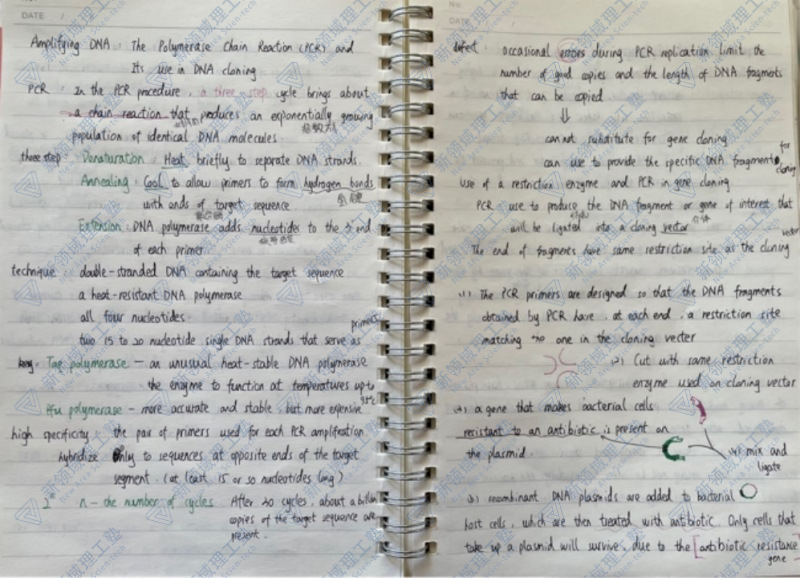 DATE
Amplifying DNA : The Polymerase Chain Reaction (PCR) and
Its use in DNA cloning
PCR : In the PCR procedure, a three step cycle brings about
a chain reaction that produces an exponentially growing
population of identical DNA molecules.
three step Denaturation : Heat briefly to separate DNA strands.
Annealing : Cool to allow primers to form hydrogen bonds
with ends of target sequence
Extension : DNA polymerase adds nucleotides to the 3' end
of each primer
technique : double-stranded DNA containing the target sequence
a heat-resistant DNA polymerase
all four nucleotides
two 15 to 20 nucleotide single DNA strands that serve as primers
key : Taq polymerase — an unusual heat-stable DNA polymerase
the enzyme to function at temperatures up to 95°C
Pfu polymerase - more accurate and stable, but more expensive
high specificity : the pair of primers used for each PCR amplification
hybridize only to sequences at opposite ends of the target
segment. (at least 15 or so nucleotides long)
2ⁿ n - the number of cycles After 30 cycles, about a billion
copies of the target sequence are
present.
No.
DATE
defect : occasional errors during PCR replication limit the
number of good copies and the length of DNA fragments
that can be copied
⇓
cannot substitute for gene cloning
can use to provide the specific DNA fragments for cloning
Use of a restriction enzyme and PCR in gene cloning
PCR use to produce the DNA fragment or gene of interest that
will be ligated into a cloning vector
The end of fragments have same restriction site as the cloning vector
(1) The PCR primers are designed so that the DNA fragments
obtained by PCR have, at each end, a restriction site
matching one in the cloning vecter
(2) Cut with same restriction
enzyme used on cloning vector
a gene that makes bacterial cells
resistant to an antibiotic is present on
the plasmid.
(4) mix and
ligate
recombinant DNA plasmids are added to bacterial
host cells, which are then treated with antibiotic. Only cells that
take up a plasmid will survive, due to the [antibiotic resistance
gene